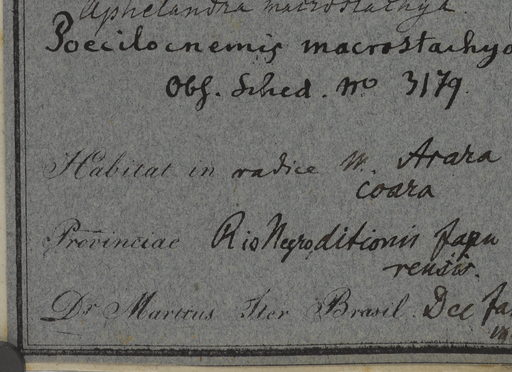 Aphelandra macrostachya.
Poecilocnemis macrostachya
Obs. Sched. No 3179.
Habitat in radice M. Arara
coara
Provinciae Rio Negro, ditionis Japu
rensis.
Dr Martius Iter Brasil. Dec